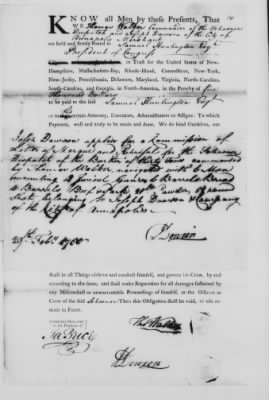 KNOW all Men by these Presents, That
WE Thomas Walker Commander of the Schooner
Dispatch and Joseph Dawson of the City of
Annapolis
are held and firmly bound to Samuel Huntington Esqr
President of Congress
in Trust for the United States of New-
Hampshire, Massachusetts-Bay, Rhode-Island, Connecticut, New-York,
New-Jersey, Pennsylvania, Delaware, Maryland, Virginia, North-Carolina,
South-Carolina, and Georgia, in America, in the Penalty of five
Thousand Dollars
to be paid to the said Samuel Huntington Esqr
certain Attorney, Executors, Administrators or Assigns: To which
Payment, well and truly to be made and done, We do bind Ourselves, our
Joseph Dawson applies for a Commission of
Letter of Marque and Reprisal for the Schooner
Dispatch of the Burthen of thirty tons commanded
by Thomas Walker navigated with 6 Men
mounting
4 Barrels Beef
Shot, belonging to Joseph Dawson & Company
of the City of Annapolis.
Feby 1780
J Dawson
shall in all Things observe and conduct himself, and govern his Crew, by and
according to the same, and shall make Reparation for all Damages sustained by
any Misconduct or unwarrantable Proceedings of himself, or the Officers or
Crew of the said Schooner Then this Obligation shall be void, or else re-
main in Force.
Sealed and Delivered
in the Presence of
Tho Walker
J Dawson